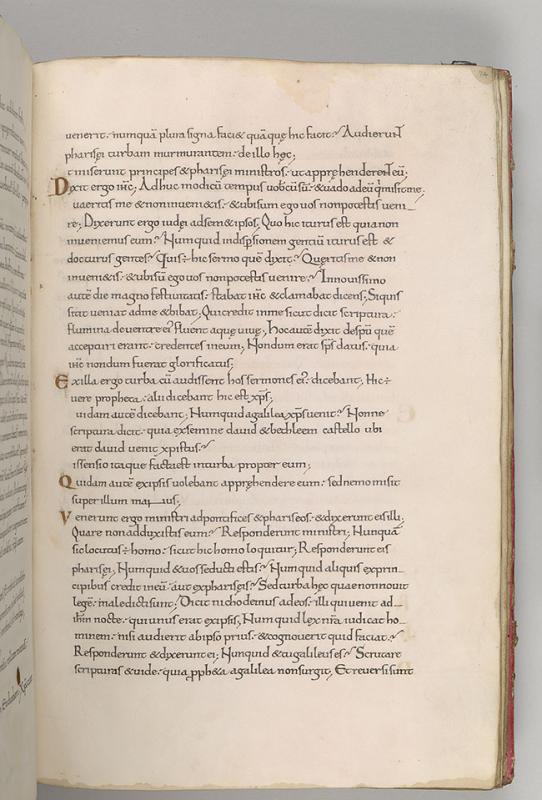 94
venerit· numquā plura signa faci& quāquę hic facit? Audierunt
pharisęi turbam murmurantem· de illo hęc;
t miserunt principes & pharisei ministros· ut apprehenderent eū;
Dixit ergo ihc; Adhuc modicū tempus vobcū sū· & vado ad eū q misit me·
vaeritis me & non invenietis· & ubi sum ego vos non potestis veni
re; Dixerunt ergo iudęi ad semetipsos; Quo hic iturus est quia non
inveniemus eum? Numquid in dispsionem gentiū iturus est &
docturus gentes? Quis ÷ hic sermo quē dixit? Queritis me & non
inveni&is· & ubi sū ego vos non potestis venire? In novissimo
autē die magno festivitatis· stabat ihc & clamabat dicens; Siquis
sitit veniat ad me & bibat; Qui credit in me sicut dicit scriptura·
flumina de ventre ei fluent aquę vivę; Hoc autē dixit de spu quē
accepturi erant· credentes in eum; Nondum erat sps datus· quia
ihc nondum fuerat glorificatus;
Ex illa ergo turba cū audissent hos sermones ei· dicebant; Hic ÷
vere propheta· alii dicebant hic est xps;
uidam autē dicebant; Numquid a galilea xps venit? Nonne
scriptura dicit· quia ex semine david & bethleem castello ubi
erat david venit xpistus?
issensio itaque facta est in turba propter eum;
Quidam autē ex ipsis volebant appręhendere eum· sed nemo misit
super illum manus;
Venerunt ergo ministri ad pontifices & phariseos· & dixerunt eis illi;
Quare non adduxistis eum? Responderunt ministri; Nunquā
sic locutus ÷ homo· sicut hic homo loquitur; Responderunt eis
pharisęi; Numquid & vos seducti estis? Numquid aliquis ex prin
cipibus credit in eū· aut ex phariseis? Sed turba hęc quae non novit
legē· maledicti sunt; Dicit nichodemus ad eos· ille qui venit ad
ihm nocte· qui unus erat ex ipsis; Numquid lex nra iudicat ho
minem· nisi audierit ab ipso prius· & cognoverit quid faciat?
Responderunt & dixerunt ei; Nunquid & tu galileus es? Scrutare
scripturas & vide· quia pph&a a galilea non surgit; Et reversi sunt